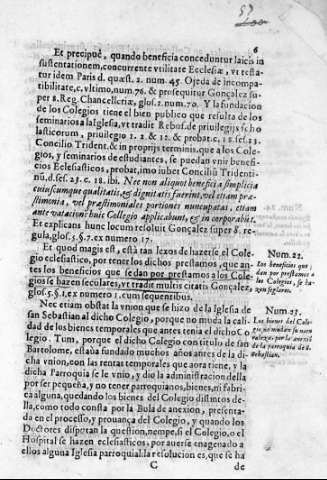 6
Et precipuè, quando beneficia conceduntur laicis in
sustentationem, concurrente vtilitate Ecclesiæ, vt testa-
tur idem Paris d. quæst. 2. num. 45. Ojeda de incompa-
tibilitate, c. vltimo, num. 76. & prosequitur Gonçalez su-
per 8. Reg. Chancelleriæ, glos. 1. num. 70. Y la fundacion
de los Colegios tiene el bien publico que resulta de los
seminarios a la Iglesia, vt tradit Rebuf. de priuilegijs scho
lasticorum, priuilegio 1. 2. & 12. & probat c. 18. ses. 23.
Concilio Trident. & in proprijs terminis, que a los Cole-
gios, y seminarios de estudiantes, se puedan vnir benefi-
cios Eclesiasticos, probat, imo iubet Conciliũ Tridenti-
nũ, d. ses. 23. c. 18. ibi. Nec non aliquot beneficia simplicia
cuiuscumque qualitatis, & dignitatis fuerint, vel etiam præ-
stimonia, vel præstimoniales portiones nuncupatas, etiam
ante vacationẽ huic Collegio applicabunt, & in corporabũt.
Et explicans hunc locum resoluit Gonçalez super 8. re-
gula, glos. 5. §. 7. ex numero 17.
Et quod magis est, està tan lexos de hazerse el Cole-
gio eclesiastico, por tener los dichos prestamos, que an-
tes los beneficios que se dan por prestamos a los Colegios
gios se hazen seculares, vt tradit multis citatis Gonçalez,
glos. 5. §. 1. ex numero 1. cum sequentibus.
Num. 22.
Los beneficios que se
dan por prestamos a
los Colegios, se ha-
zen seglares.
Nec etiam obstat la vnion que se hizo de la Iglesia de
san Sebastian al dicho Colegio, porque no muda la cali-
dad de los bienes temporales que antes tenia el dicho Co
legio. Tum, porque el dicho Colegio con titulo de san
Bartolome, estaua fundado muchos años antes de la di-
cha vnion, con las rentas temporales que aora tiene, y la
dicha Parroquia se le vnio, y dio la administracion della
por ser pequeña, y no tener parroquianos, bienes, ni fabri
ca alguna, quedando los bienes del Colegio distintos de-
lla, como todo consta por la Bula de anexion, presenta-
da en el processo, y prouança del Colegio, y quando los
Doctores disputan la question, nempe, si el Colegio, o el
Hospital se hazen eclesiasticos, por auerse enagenado a
ellos alguna Iglesia parroquial: la resolucion es, que se ha
Num. 23.
Los bienes del Cole-
gio no mudan su natu
raleza, por la anexiõ
de la parroquia de S.
Sebastian.
C
de